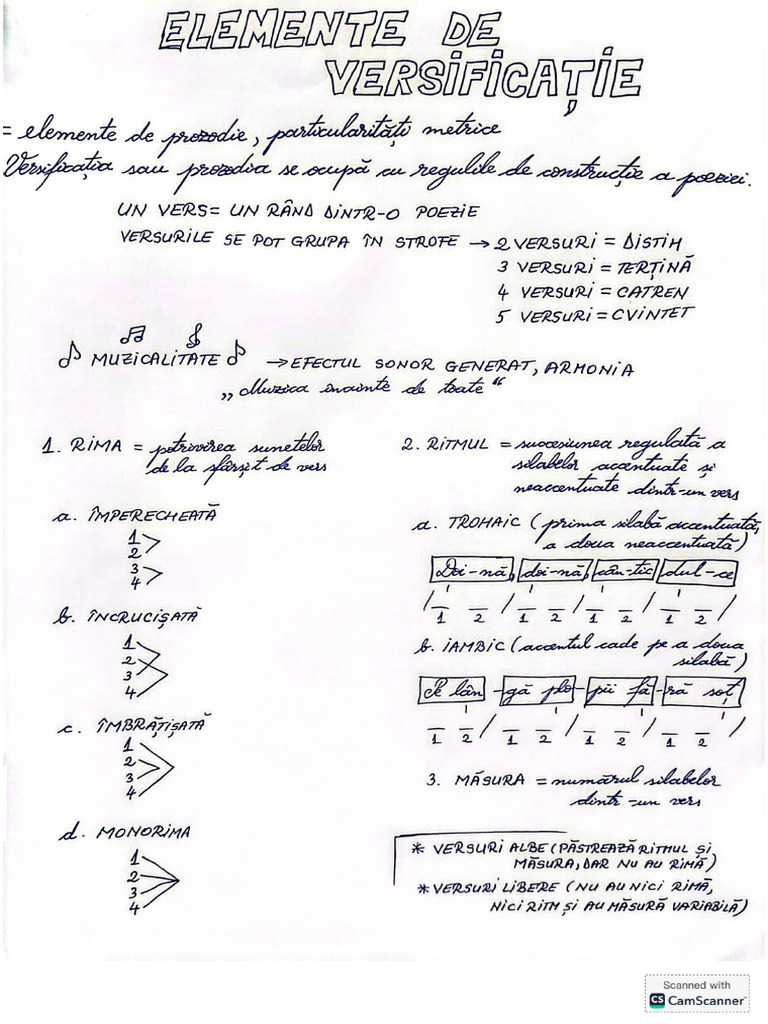 ELEMENTE DE
VERSIFICAȚIE
= elemente de prozodie, particularități metrice
Versificația sau prozodia se ocupă cu regulile de construcție a poeziei.
UN VERS = UN RÂND DINTR-O POEZIE
VERSURILE SE POT GRUPA ÎN STROFE → 2 VERSURI = DISTIH
3 VERSURI = TERȚINĂ
4 VERSURI = CATREN
5 VERSURI = CVINTET
MUZICALITATE → EFECTUL SONOR GENERAT, ARMONIA
„Muzica înainte de toate"
1. RIMA = potrivirea sunetelor
de la sfârșit de vers
a. ÎMPERECHEATĂ
1
2
3
4
b. ÎNCRUCIȘATĂ
1
2
3
4
c. ÎMBRĂȚIȘATĂ
1
2
3
4
d. MONORIMA
1
2
3
4
2. RITMUL = succesiunea regulată a
silabelor accentuate și
neaccentuate dintr-un vers
a. TROHAIC (prima silabă accentuată,
a doua neaccentuată)
Doi-nă, doi-nă, cân-tic dul-ce
/ 1 2 / 1 2 / 1 2 / 1 2 /
b. IAMBIC (accentul cade pe a doua
silabă)
Pe lân -gă plo- pii fă -ră soț
1 2 / 1 2 / 1 2 / 1 2 /
3. MĂSURA = numărul silabelor
dintr-un vers
* VERSURI ALBE (PĂSTREAZĂ RITMUL ȘI
MĂSURA, DAR NU AU RIMĂ)
* VERSURI LIBERE (NU AU NICI RIMĂ,
NICI RITM ȘI AU MĂSURĂ VARIABILĂ)
Scanned with
CS CamScanner